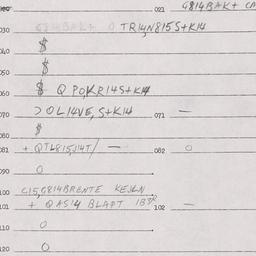 021 G814BAK+ CA
030 TRI4N815S+K14
040 $
050 $
060 $ Q POKR14S+K14
070 >OL14VE,S+K14 071 —
080 $
081 + QTL815J14T/ — 082 O
090 O
100 C15,G814BRENTE KEJLN
101 + QAS14 BLAFT 102 —
110 O
120 O